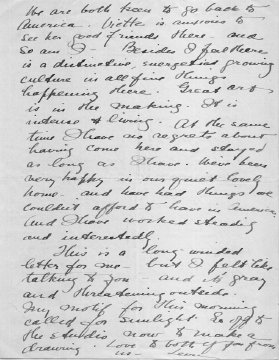 We are both keen to go back to
America. Yvette is anxious to
see her good friends there and
so am I - Besides I feel there
is a distinctive, energetic growing
culture in all fine things
happening there. Great art
is in the making. It is
intense & living. At the same
time I have no regrets about
having come here and stayed
as long as I have. We've been
very happy in our quiet lovely
home - and have had things we
couldn't afford to have in America
And I have worked steadily
and interestedly.
This is a long winded
letter for me - but I felt like
talking to you - and its gray
and threatening outside.
My motif for this morning
called for sunlight. So off to
the studio now to make a
drawing Love to both of you from
us -